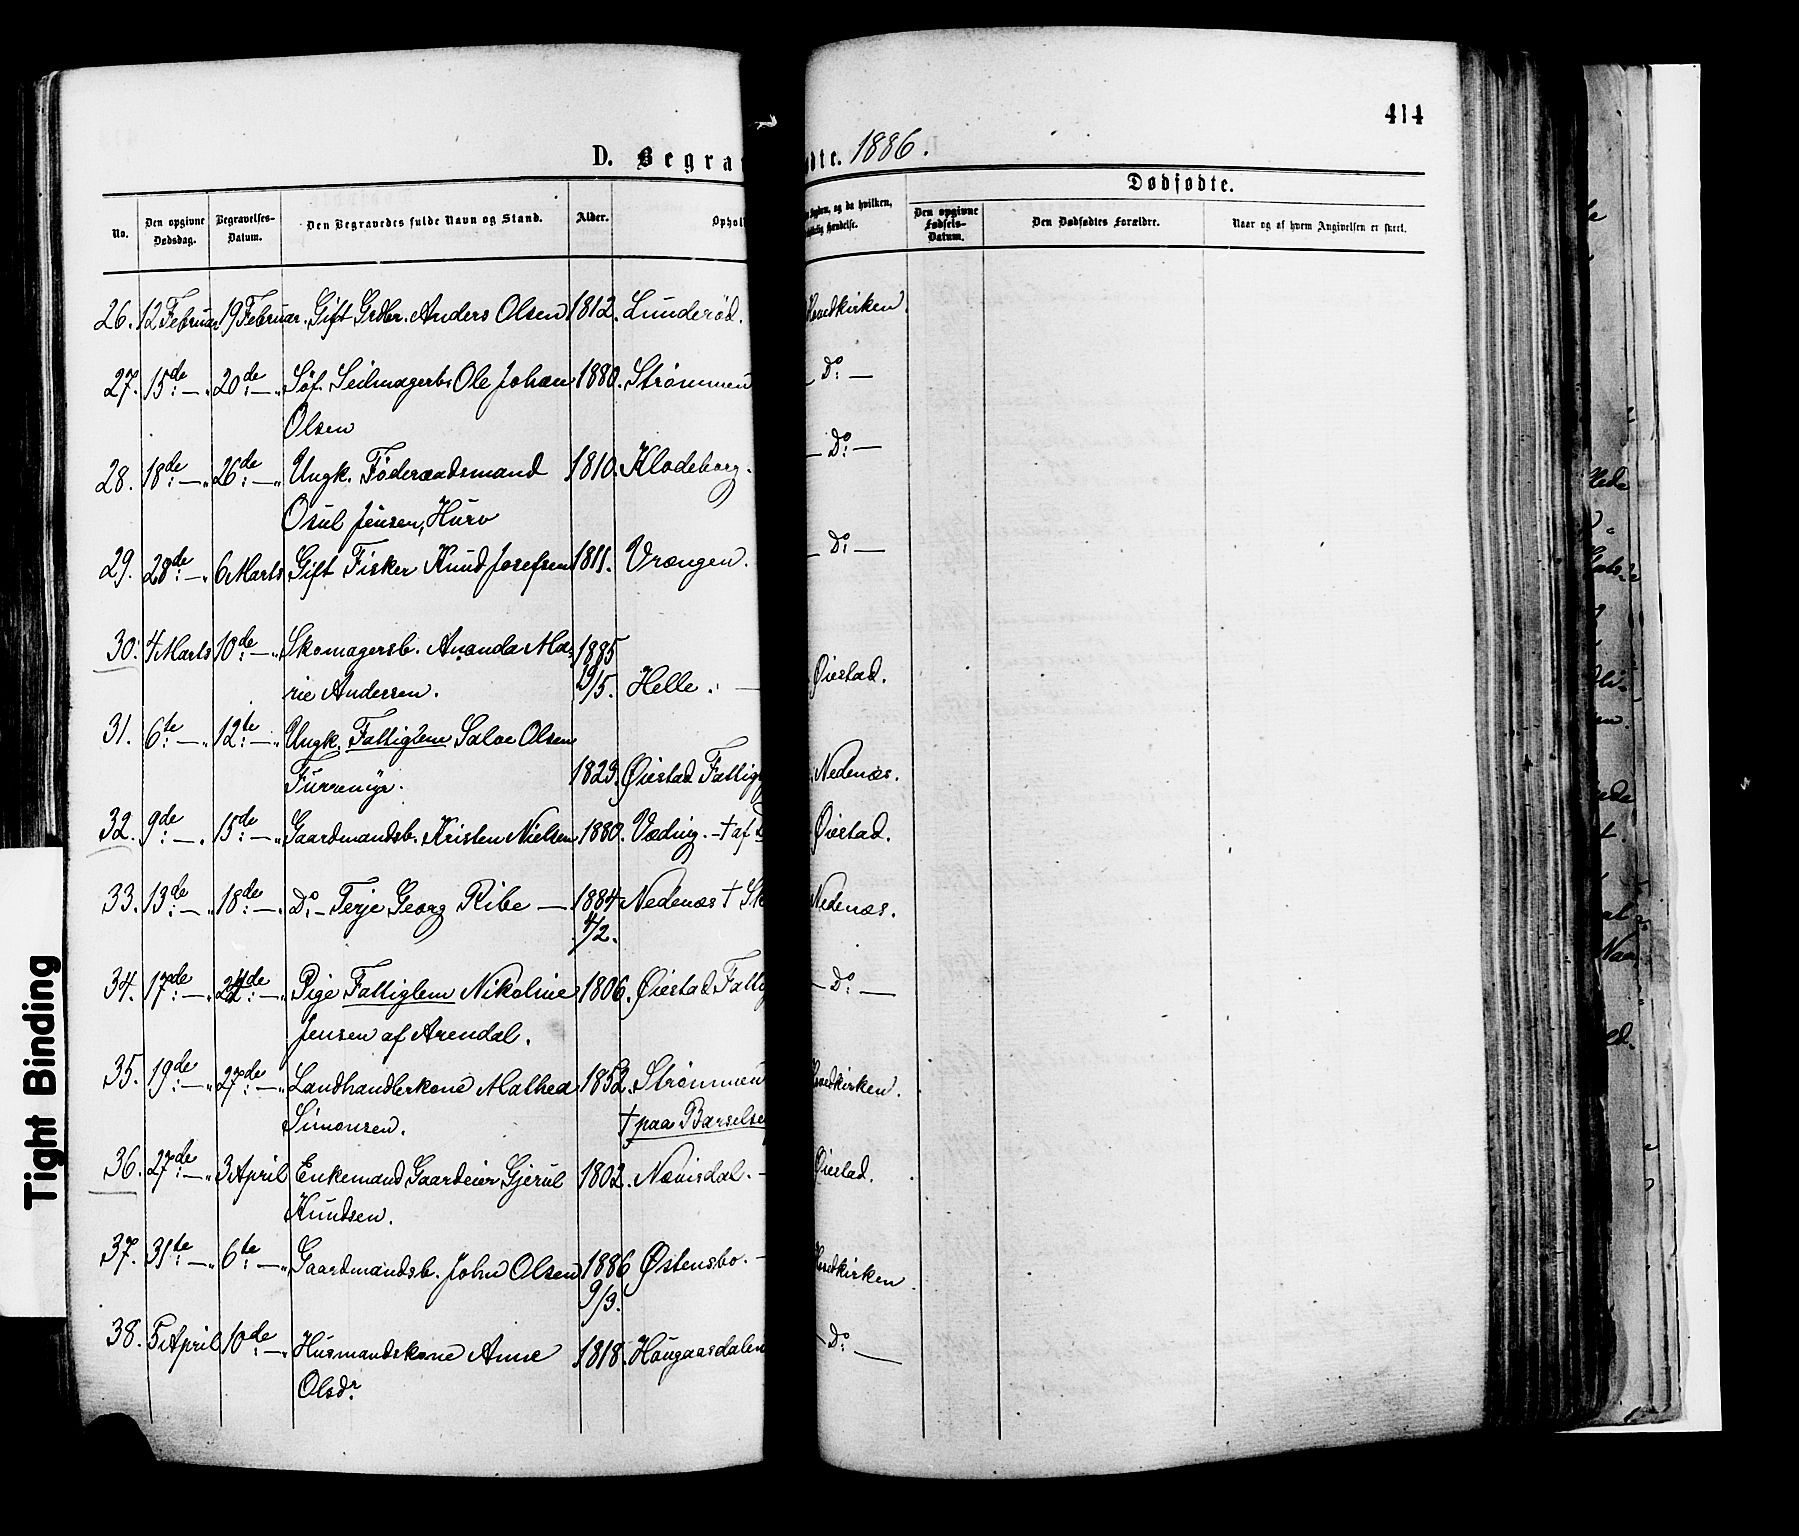 414
D. Begra
dte. 1886.
Dødfødte.
No.
Den opgivne Dødsdag.
Begravelses-Datum.
Den Begravedes fulde Navn og Stand.
Alder.
Ophol
Bygden, og da hvilken,
Hændelse.
Den opgivne Fødsels-Datum.
Den Dødfødtes Forældre.
Naar og af hvem Angivelsen er skeet.
26. 12 Februar 19 Februar. Gift Grdbr. Anders Olsen 1812. Lunderød. Hovedkirken.
27. 15de — „ 20de — „ Søf. Seilmagerb. Ole Johan 1880. Strømmen — Do: —
Olsen
28. 18de — „ 26de — „ Ungk. Føderaadsmand 1810. Klodeborg. — Do: —
Osul Jensen, Hurv
29. 28de — „ 6 Marts Gift Fisker Knud Josefsen 1811. Vrængen. — Do: —
30. 4 Marts 10de — „ Skomagersb. Amanda Ma- 1885
rie Andersen. 19/5. Helle. — Øiestad.
31. 6te — „ 12te — „ Ungk. Fattiglem Salve Olsen
Furremyr. 1823. Øiestad Fattigg Nedenæs.
32. 9de — „ 15de — „ Gaardmandsb. Kristen Nielsen 1880. Væding. — † af Øiestad.
33. 13de — „ 18de — „ Do — Terje Georg Ribe — 1884 Nedenæs † Sk Nedenæs.
4/2.
34. 17de — „ 24de — „ Pige Fattiglem Nikoline 1806. Øiestad Fattig — Do: —
Jensen af Arendal.
35. 19de — „ 27de — „ Landhandlerkone Mathea 1852. Strømmen Hovedkirken.
Simonsen. † paa Barselse
36. 27de — „ 3 April Enkemand Gaardeier Gjerul 1802. Nævisdal. — Øiestad.
Knudsen.
37. 31te — „ 6te — „ Gaardmandsb. John Olsen 1886 Østensbo. — Hovedkirken.
9/3.
38. 5 April 10de — „ Husmandskone Anne 1818. Haugaasdalen — Do: —
Olsdr.
Tight Binding